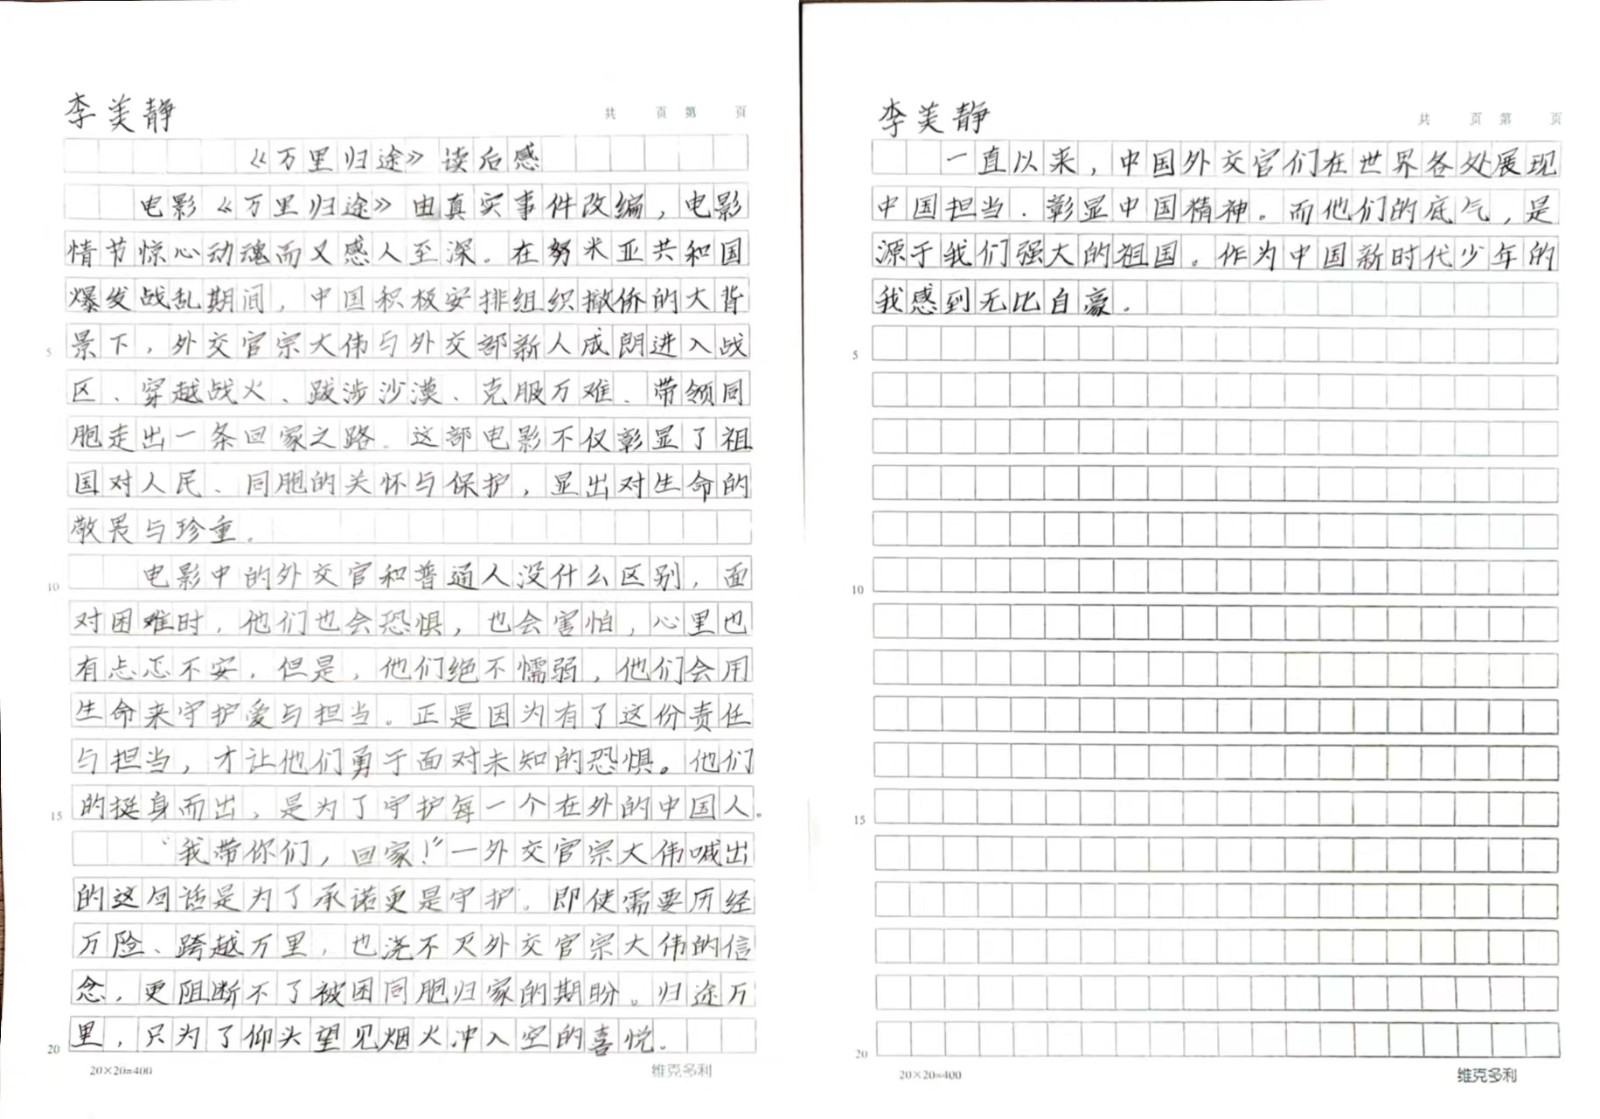 李美静
共 页 第 页
《万里归途》读后感
电影《万里归途》由真实事件改编，电影
情节惊心动魂而又感人至深。在努米亚共和国
爆发战乱期间，中国积极安排组织撤侨的大背
景下，外交官宗大伟与外交部新人成朗进入战
5
区、穿越战火、跋涉沙漠、克服万难、带领同
胞走出一条回家之路。这部电影不仅彰显了祖
国对人民、同胞的关怀与保护，显出对生命的
敬畏与珍重。
电影中的外交官和普通人没什么区别，面
10
对困难时，他们也会恐惧，也会害怕，心里也
有忐忑不安，但是，他们绝不懦弱，他们会用
生命来守护爱与担当。正是因为有了这份责任
与担当，才让他们勇于面对未知的恐惧。他们
的挺身而出，是为了守护每一个在外的中国人。
15
“我带你们，回家！”一外交官宗大伟喊出
的这句话是为了承诺更是守护。即使需要历经
万险、跨越万里，也浇不灭外交官宗大伟的信
念，更阻断不了被困同胞归家的期盼。归途万
里，只为了仰头望见烟火冲入空的喜悦。
20
20×20=400
维克多利
李美静
共 页 第 页
一直以来，中国外交官们在世界各处展现
中国担当．彰显中国精神。而他们的底气，是
源于我们强大的祖国。作为中国新时代少年的
我感到无比自豪．
5
10
15
20
20×20=400
维克多利